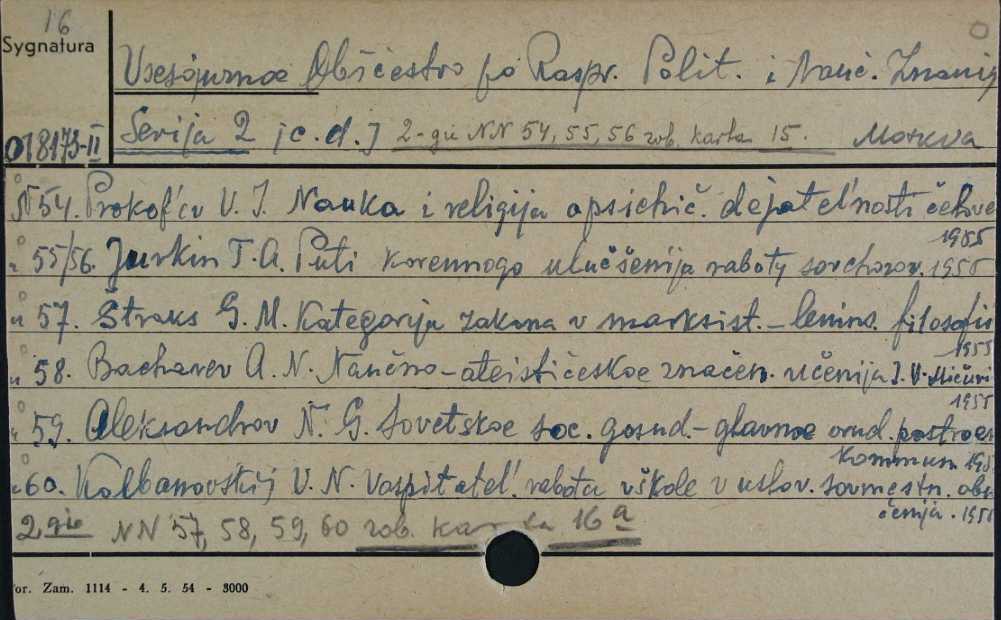 16
Sygnatura
Vsesojuznoe Obščestvo po Raspr. Polit. i Nauč. Znanij
018173-II
Serija 2 [c.d.] 2-gie NN 54, 55, 56 zob. karta 15. Moskva
N 54. Prokof'ev V. I. Nauka i religija o psichič. dejatel'nosti čelove
1955
55/56. Jurkin T. A. Puti korennogo ulučšenija raboty sovchozov. 1955
57. Straks G. M. Kategorija zakona v marksist.-lenins. filosofii
1955
58. Bacharev A. N. Naučno-ateističeskoe značen. učenija I. V. Mičuri
1955
59. Aleksandrov N. G. Sovetskoe soc. gosud.- glavnoe orud. postroen
kommun. 195
60. Kolbanovskij V. N. Vospitatel'. rabota v škole v uslov. sovmestn. obu
čenija. 1955
2 gie NN 57, 58, 59, 60 zob. karta 16a
or. Zam. 1114 - 4. 5. 54 - 3000